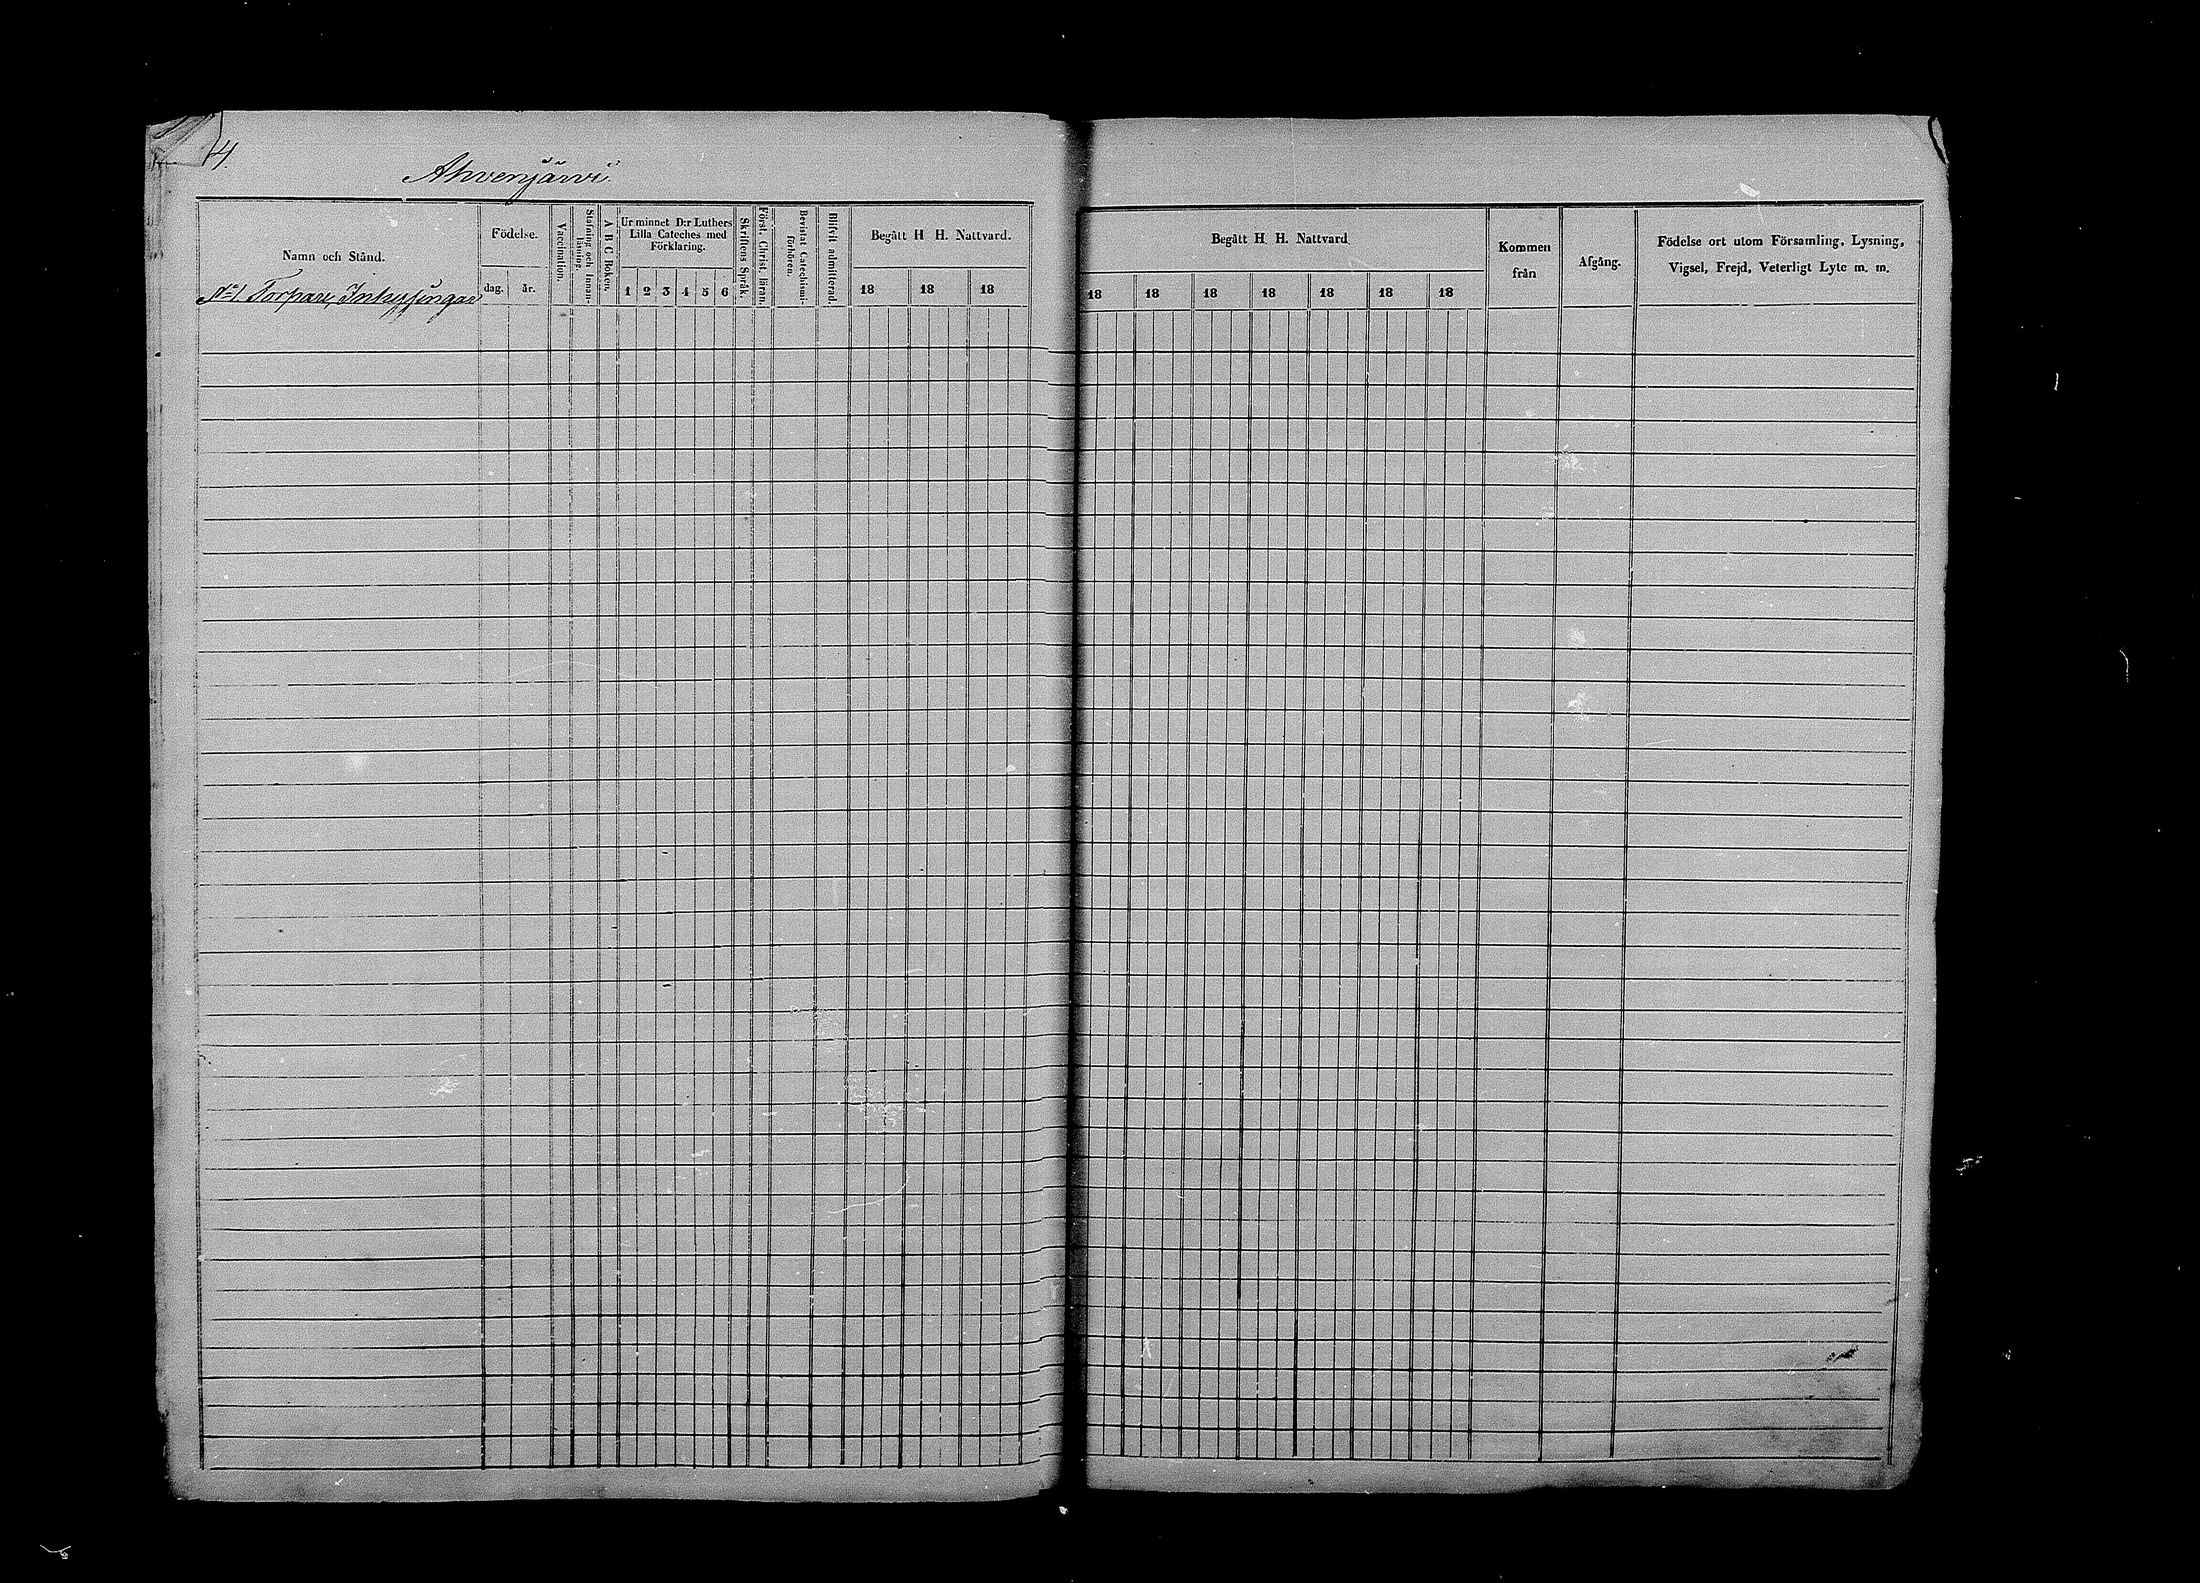 4.
Ahvenjärvi.
Namn och Stånd.
Födelse.
dag.
år.
Vaccination.
Stafning och Innan-
läsning.
A B C Boken.
Ur minnet D:r Luthers
Lilla Cateches med
Förklaring.
1 2 3 4 5 6
Skriftens Språk.
Först. Christ. läran.
Bevistat Catechismi-
förhören.
Blifvit admitterad.
Begått H H. Nattvard.
18 18 18
Begått H. H. Nattvard
18 18 18 18 18 18 18
Kommen
från
Afgång.
Födelse ort utom Församling, Lysning,
Vigsel, Frejd, Veterligt Lyte m. m.
No 1. Torpare,